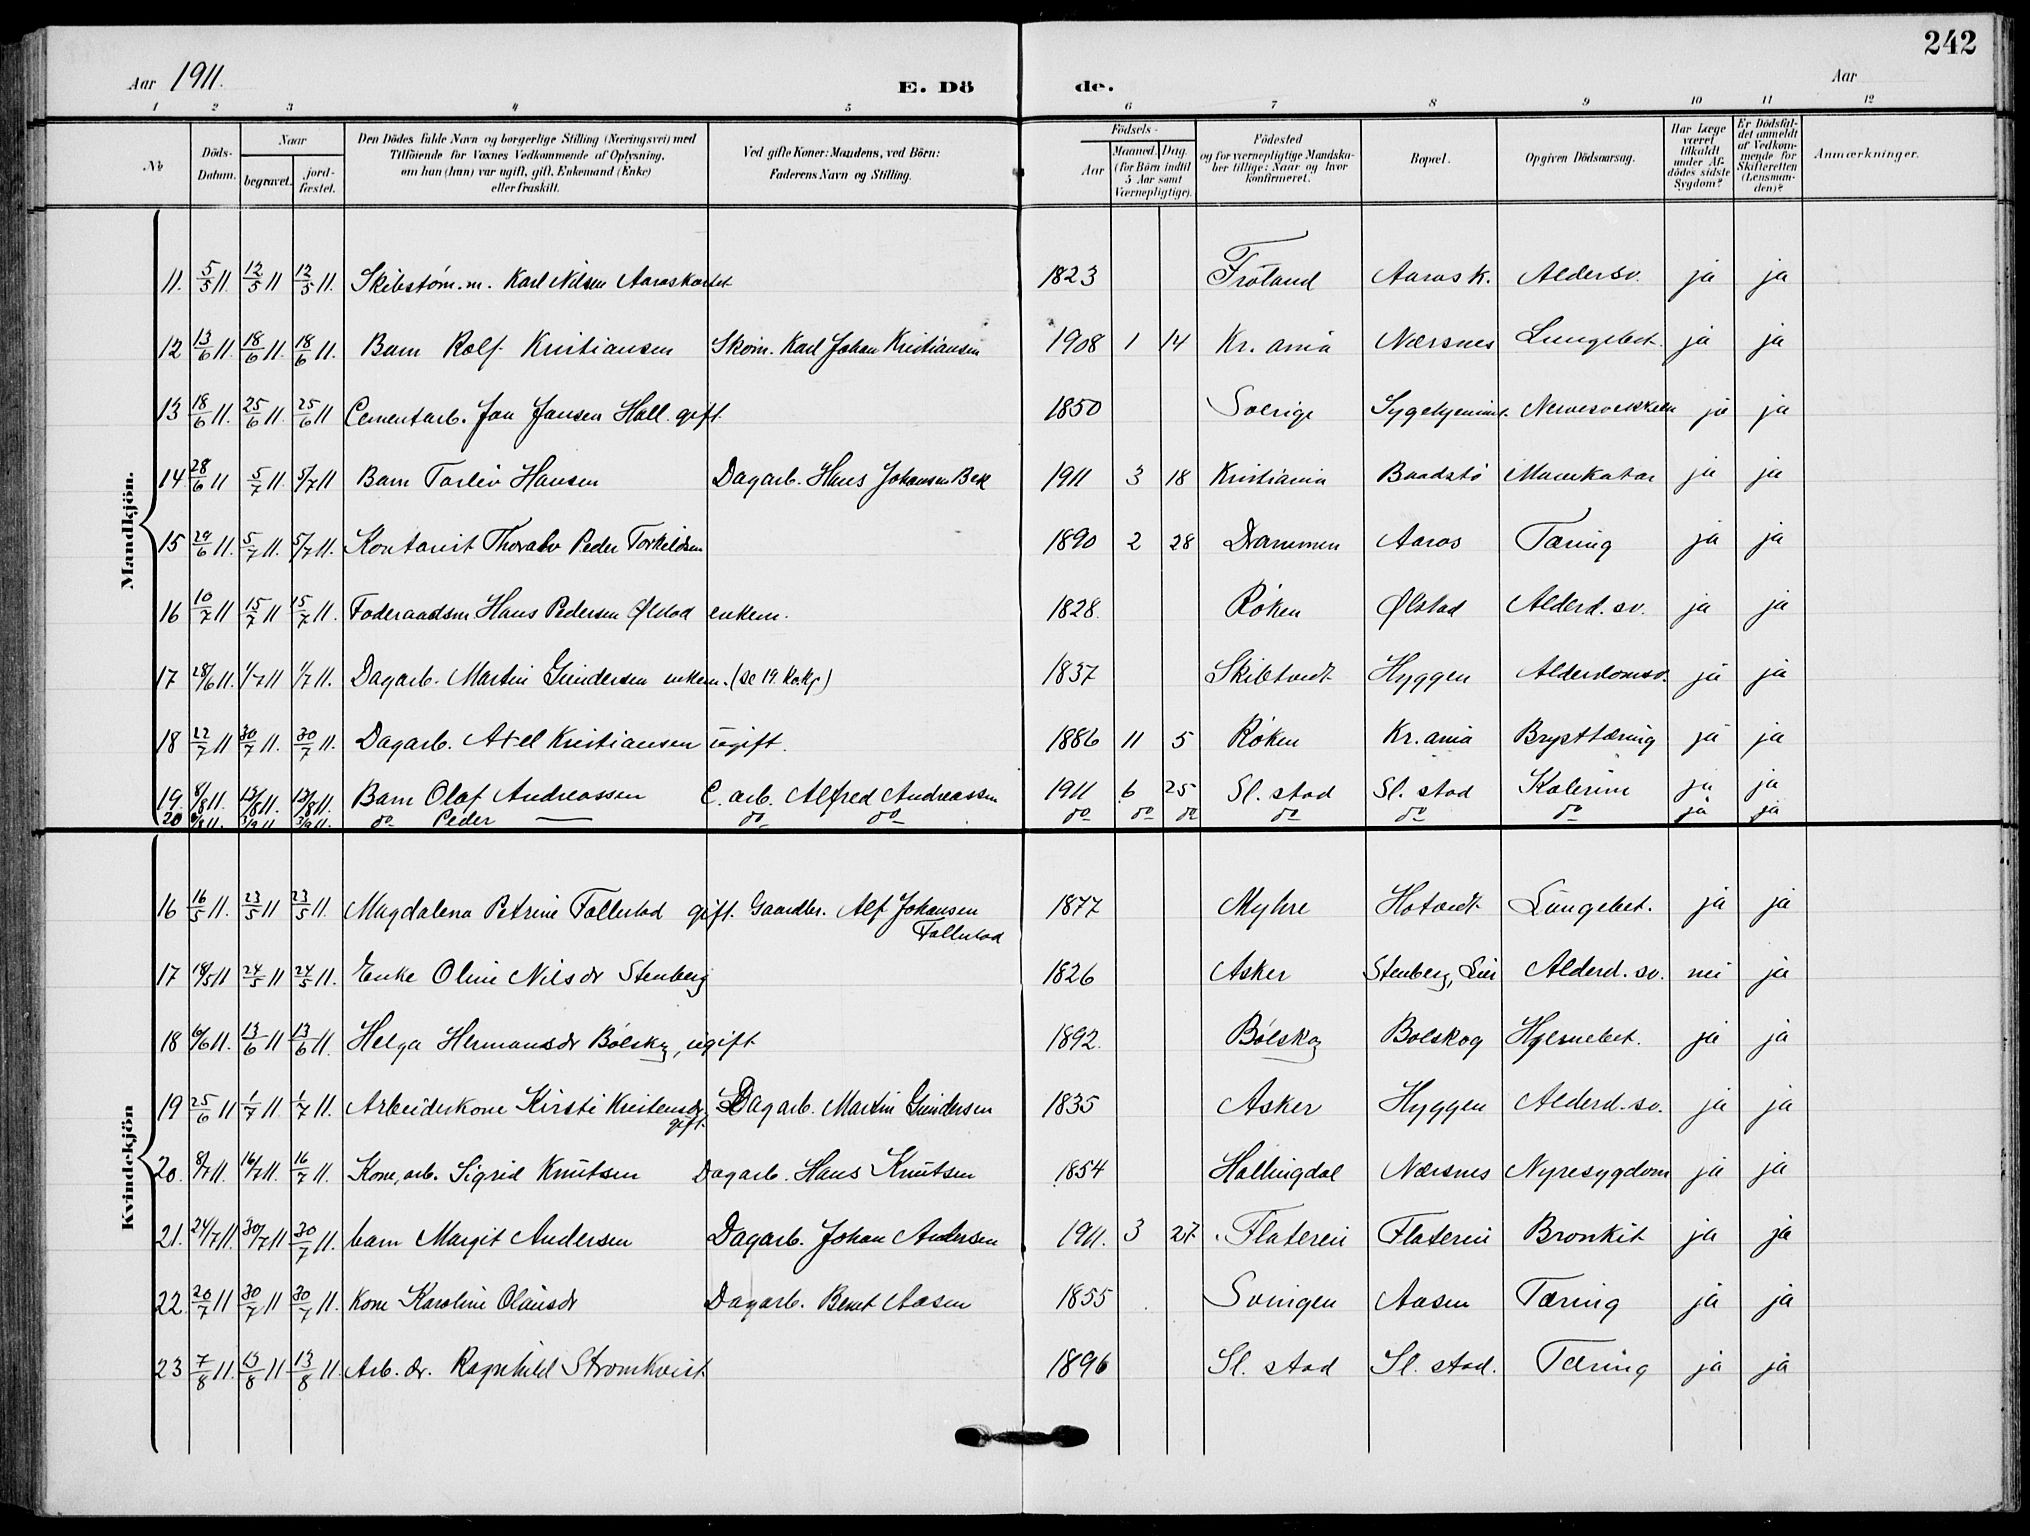 242
Aar 1911. E. Dö de. Aar
1 2 3 4 5 6 7 8 9 10 11 12
No
Döds-Datum.
Naar
begravet.
jord-festet.
Den Dödes fulde Navn og borgerlige Stilling (Næringsvei) med
Tilföiende for Voxnes Vedkommende af Oplysning,
om han (hun) var ugift, gift, Enkemand (Enke)
eller fraskilt.
Ved gifte Koner: Mandens, ved Börn:
Faderens Navn og Stilling.
Födsels-
Aar
Maaned. Dag.
(for Börn indtil
5 Aar samt
Værnepligtige).
Födested
og for værnepligtige Mandska-
ber tillige: Naar og hvor
konfirmeret.
Bopæl.
Opgiven Dödsaarsag.
Har Læge
været
tilkaldt
under Af-
dödes sidste
Sygdom?
Er Dödsfal-
det anmeldt
af Vedkom-
mende for
Skifteretten
(Lensman-
den)?
Anmærkninger.
Mandkjön.
11. 5/5 11. 12/5 11 12/5 11. Skibstøm.m. Karl Nilsen Aaroskortet 1823 Fröland Aaros k. Aldersv. ja ja
12 13/6 11. 18/6 11. 18/6 11. Barn Rolf Kristiansen Skom. Karl Johan Kristiansen 1908 1 14 Kr.ania Nærsnes Lungebet. ja ja
13 18/6 11. 25/6 11. 25/6 11 Cementarb. Jan Jansen Hall. gift. 1850 Sverige Sygehjemmet. ja ja
14 28/6 11 5/7 11. 5/7 11 Barn Torleiv Hansen Dagarb. Hans Johansen Bek 1911 3 18 Kristiania Baadstö ja ja
15 29/6 11. 5/7 11. 5/7 11. Kontorist Thoralv Peder Torkildsen 1890 2 28 Drammen Aaros Tæring ja ja
16 10/7 11 15/7 11 15/7 11. Foderaadsm Hans Pedersen Ølstad enkem. 1828. Röken Ølstad Alderd. sv. ja ja
17 28/6 11. 1/7 11 1/7 11. Dagarb. Martin Gundersen enkem. (se 19. kvkj) 1837 Skibtvedt Hyggen Alderdomsv. ja ja
18 22/7 11 30/7 11. 30/7 11. Dagarb. Axel Kristiansen ugift. 1886 11 5 Röken Kr.ania Brysttæring ja ja
19. 8/8 11. 13/8 11. 13/8 11. Barn Olaf Andreassen C. arb. Alfred Andreassen 1911 6 25 Sl. stad Sl. stad Kolerine ja ja
20 11. 3/9 11 3/9 11. do Peder — do do do do do do do do ja ja
Kvindekjön
16 16/5 11. 23/5 11 23/5 11. Magdalena Petrine Follestad gift. Gaardbr. Alf Johansen 1877 Myhre Hotvedt Lungebet. ja ja
Follestad
17 18/5 11 24/5 11 24/5 11. Enke Oline Nilsdr Stenberg 1826 Asker Stenberg, Lier Alderd. sv. nei ja
18 6/6 11. 13/6 11 13/6 11. Helga Hermansdr Bölskg, ugift 1892. Bölskog Bolskog Hjernebet. ja ja
19 25/6 11 1/7 11. 1/7 11. Arbeiderkone Kirsti Kristensdr, Dagarb. Martin Gundersen 1835 Asker Hyggen Alderd. sv. ja ja
gift.
20. 8/7 11. 16/7 11. 16/7 11. Kone, arb. Sigrid Knutsen Dagarb. Hans Knutsen 1854 Hallingdal Nærsnes Nyresygdom ja ja
21. 24/7 11. 30/7 11 30/7 11. barn Margit Andersen Dagarb. Johan Andersen 1911. 3 27. Flatereie Flatereie Bronkit ja ja
22. 20/7 11 30/7 11 30/7 11. Kone Karoline Olausdr Dagarb. Bernt Aasen 1855 Svingen Aasen Tæring ja ja
23 7/8 11. 13/8 11 13/8 11. Arb. dr. Ragnhild Strømkvist 1896 Sl. stad Sl. stad. Tæring ja ja